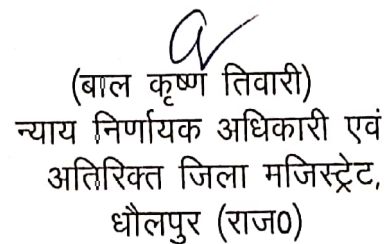 (बाल कृष्ण तिवारी)
न्याय निर्णायक अधिकारी एवं
अतिरिक्त जिला मजिस्ट्रेट,
धौलपुर (राज0)